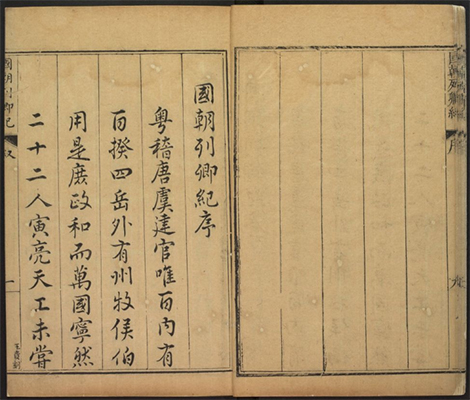 國朝列卿紀
序
國朝列卿紀序
粵稽唐虞建官唯百內有
百揆四岳外有州牧侯伯
用是庶政和而萬國寧然
二十二人寅亮天工未嘗
國朝列卿紀
一